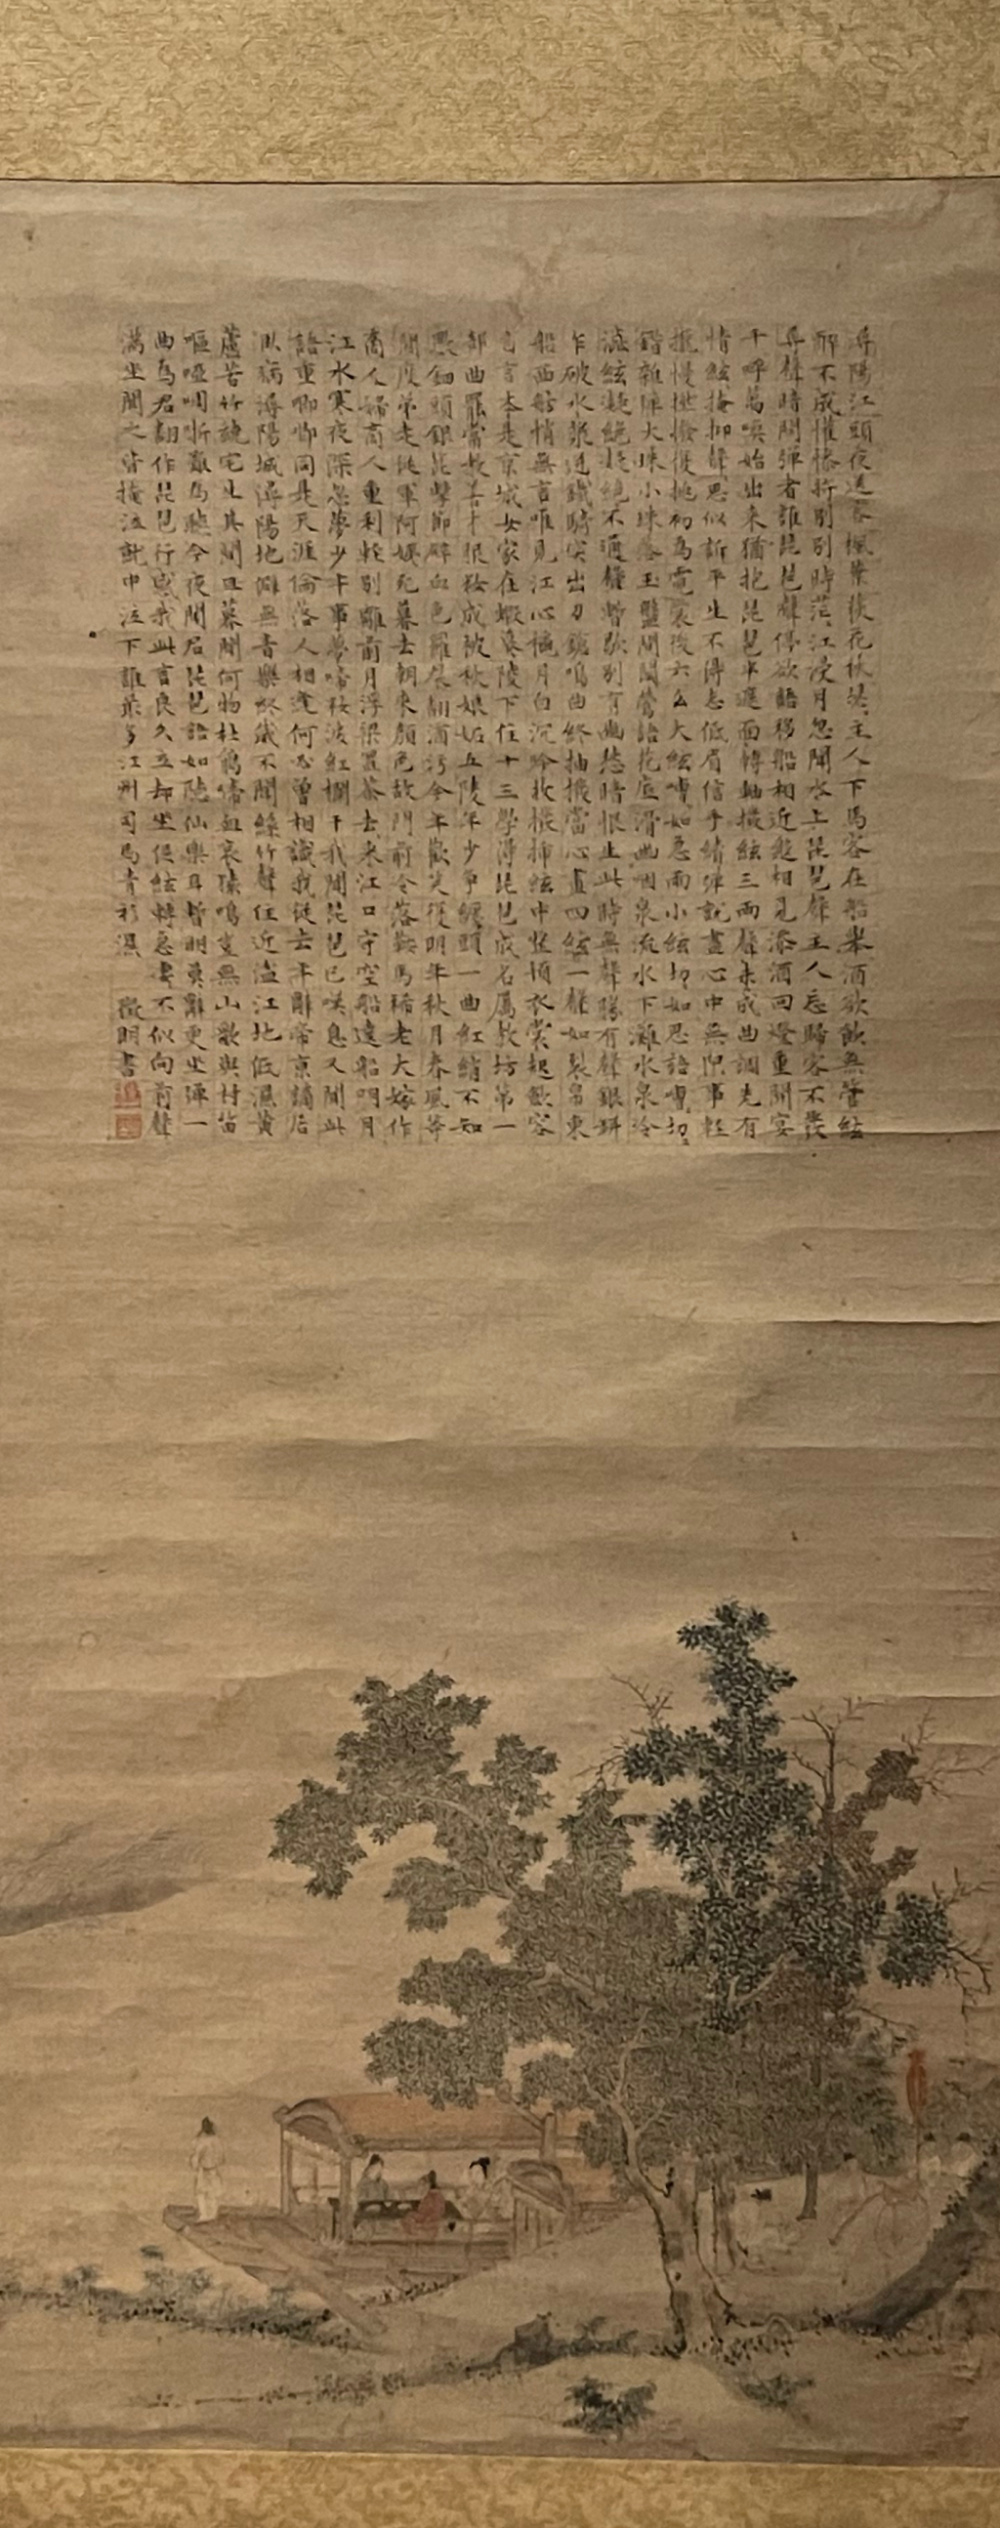 潯陽江頭夜送客楓葉荻花秋瑟〻主人下馬客在船舉酒欲飲無管絃
醉不成懽慘將別別時茫〻江浸月忽聞水上琵琶聲主人忘歸客不發
尋聲暗問彈者誰琵琶聲停欲語移船相近邀相見添酒回燈重開宴
千呼萬喚始出來猶抱琵琶半遮面轉軸撥絃三兩聲未成曲調先有
情絃〻掩抑聲〻思似訴平生不得志低眉信手續〻彈說盡心中無限事輕
攏慢撚撥復挑初為霓裳後六么大絃嘈〻如急雨小絃切〻如私語嘈〻切〻
錯雜彈大珠小珠落玉盤間關鶯語花底滑幽咽泉流水下灘水泉冷
澁絃凝絕凝絕不通聲暫歇別有幽愁暗恨生此時無聲勝有聲銀缾
乍破水漿迸鐵騎突出刀鎗鳴曲終抽撥當心畫四絃一聲如裂帛東
船西舫悄無言唯見江心秋月白沉吟收撥插絃中整頓衣裳起斂容
自言本是京城女家在蝦蟇陵下住十三學得琵琶成名屬教坊第一
部曲罷常教善才服妝成被秋娘妬五陵年少爭纏頭一曲紅綃不知
數鈿頭銀篦擊節碎血色羅裙翻酒污今年歡笑復明年秋月春風等
閒度弟走從軍阿姨死暮去朝來顏色故門前冷落鞍馬稀老大嫁作
商人婦商人重利輕別離前月浮梁買茶去〻來江口守空船遶船明月
江水寒夜深忽夢少年事夢啼妝淚紅欄干我聞琵琶已嘆息又聞此
語重唧唧同是天涯淪落人相逢何必曾相識我從去年辭帝京謫居
臥病潯陽城潯陽地僻無音樂終歲不聞絲竹聲住近湓江地低濕黃
蘆苦竹繞宅生其間旦暮聞何物杜鵑啼血哀猿鳴豈無山歌與村笛
嘔啞啁哳難為聽今夜聞君琵琶語如聽仙樂耳暫明莫辭更坐彈一
曲為君翻作琵琶行感我此言良久立却坐促絃〻轉急凄〻不似向前聲
滿坐聞之皆掩泣就中泣下誰最多江州司馬青衫濕 徵明書